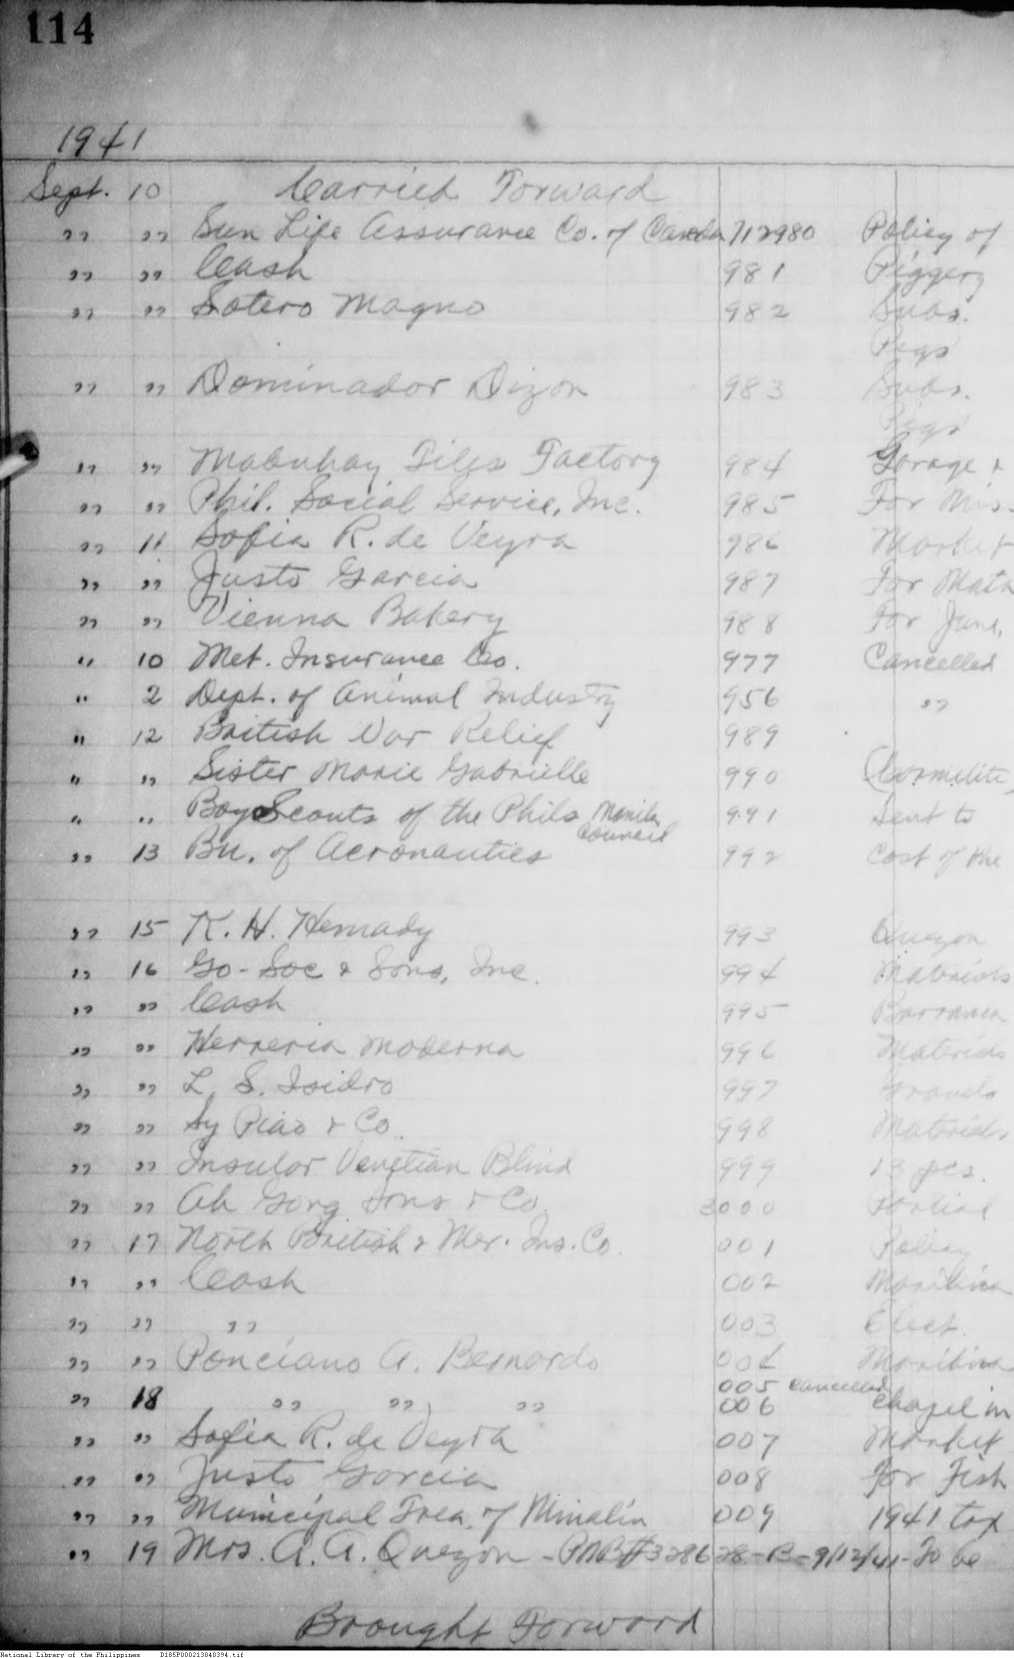 114
1941
Sept. 10 Carried Forward
" " Sun Life Assurance Co. of Canada 712980 Policy of
" " Cash 981 Piggery
" " Sotero Magno 982 Subs.
Pigs
" " Dominador Dizon 983 Subs.
Pigs
" " Mabuhay Tiles Factory 984 Garage &
" " Phil. Social Service, Inc. 985 For Mis.
" 11 Sofia R. de Veyra 986 Market
" " Justo Garcia 987 For Mata
" " Vienna Bakery 988 For June,
" 10 Met. Insurance Co. 977 Cancelled
" 2 Dept. of Animal Industry 956 "
" 12 British War Relief 989
" " Sister Marie Gabrielle 990 Carmelite,
" " Boy Scouts of the Phils Manila Council 991 Sent to
" 13 Bu. of Aeronautics 992 Cost of the
" 15 K. H. Hemady 993 Quezon
" 16 Go-Soc & Sons, Inc. 994 Materials
" " Cash 995 Barranca
" " Herreria Moderna 996 Materials
" " L. S. Isidro 997 Gravels
" " Sy Piao & Co. 998 Materials
" " Insular Venetian Blind 999 13 pcs.
" " Ah Gong Sons & Co. 3000 Partial
" 17 North British & Mer. Ins. Co. 001 Policy
" " Cash 002 Marikina
" " " 003 Elect.
" " Ponciano A. Bernardo 004 Marikina
005 Cancelled
" 18 " " " 006 Chapel in
" " Sofia R. de Veyra 007 Market
" " Justo Garcia 008 For Fish
" " Municipal Trea. of Minalin 009 1941 tax
" 19 Mrs. A. A. Quezon - PNB # 328628-B-9/12/41-To be
Brought Forward
National Library of the Philippines D185P000213040394.tif